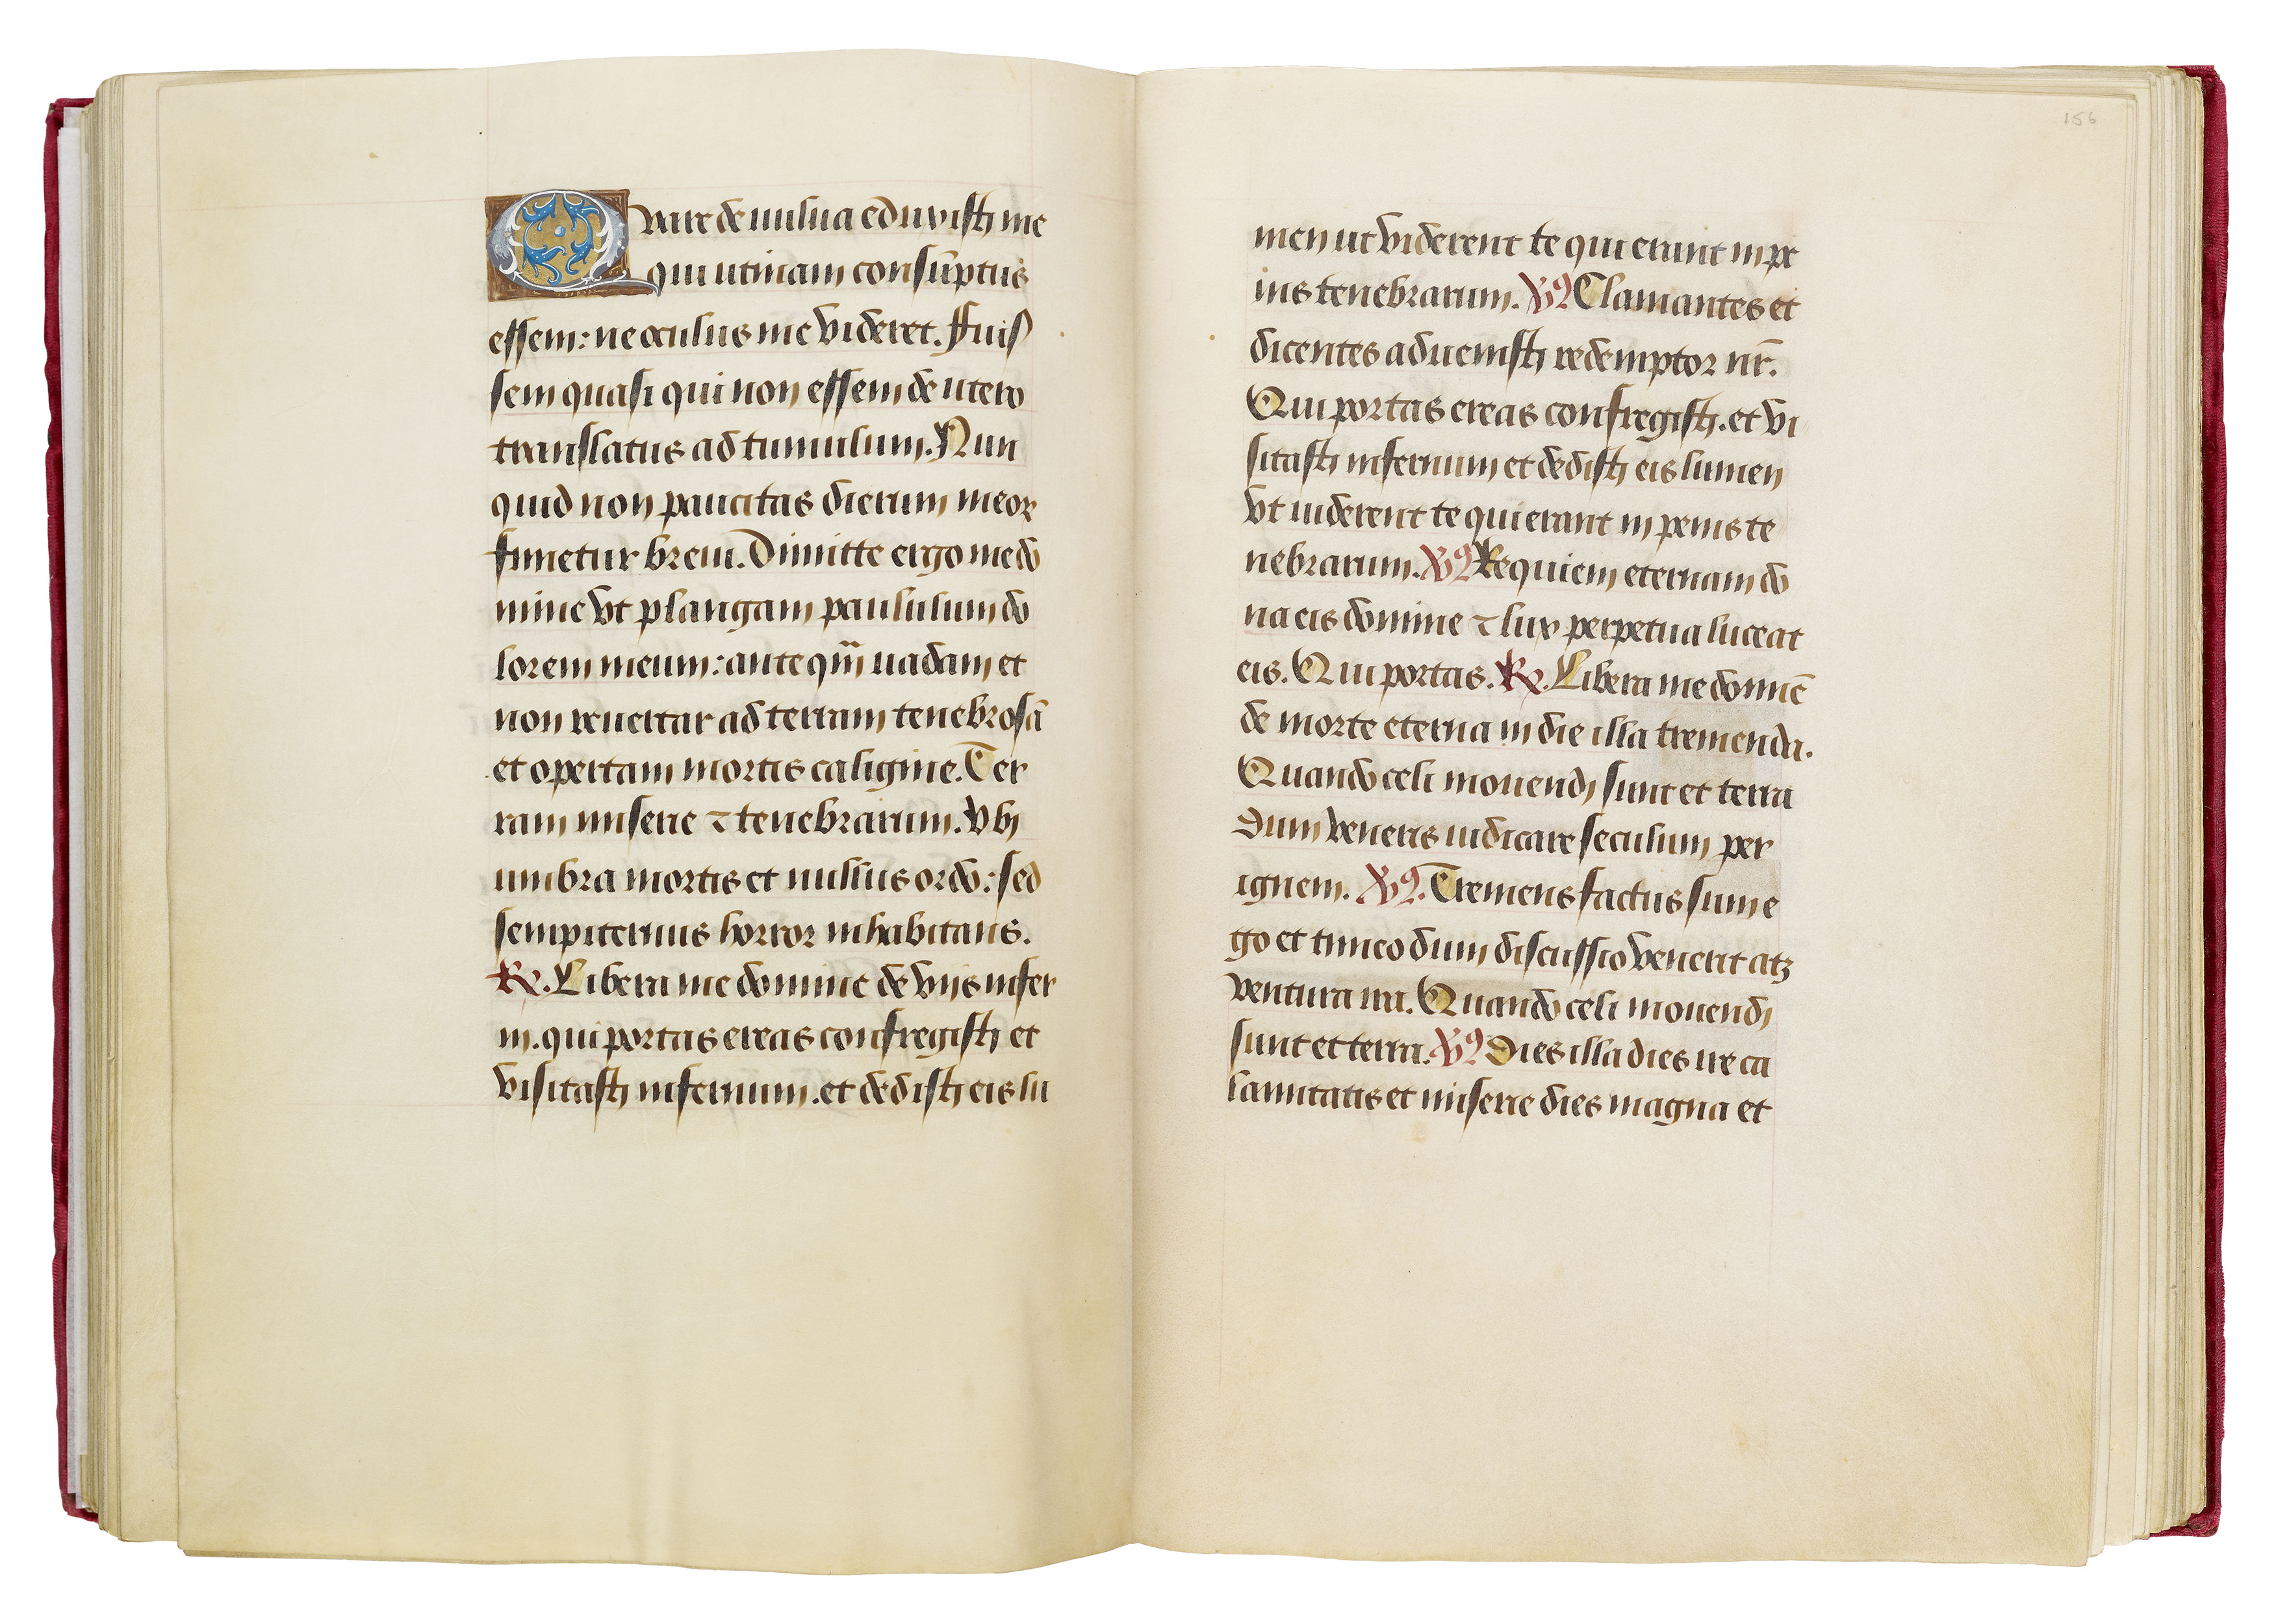 Quare de uulua eduxisti me
qui utinam consūptus
essem: ne oculus me videret. Fuis
sem quasi qui non essem de utero
translatus ad tumulum. Nun
quid non paucitas dierum meoꝝ
finietur breui. Dimitte ergo me do
mine vt plangam paululum do
lorem meum: ante qm̄ uadam et
non reuertar ad terram tenebrosā
et opertam mortis caligine. Ter
ram miserie ⁊ tenebrarum. Vbi
umbra mortis et nullus ordo: sed
sempiternus horror inhabitans.
℟. Libera me domine de vijs infer
ni. qui portas ereas confregisti et
visitasti infernum. et dedisti eis lu
156
men ut viderent te qui erunt in pe
nis tenebrarum. ℣ Clamantes et
dicentes aduenisti redemptor nr̄.
Qui portas ereas confregisti. et vi
sitasti infernum et dedisti eis lumen
vt uiderent te qui erant in penis te
nebrarum. ℣ Requiem eternam do
na eis domine ⁊ lux perpetua luceat
eis. Qui portas. ℟. Libera me dominē
de morte eterna in die illa tremenda.
Quando celi mouendi sunt et terra
Dum veneris iudicare seculum per
ignem. ℣. Tremens factus sum e
go et timeo dum discussio venerit atꝫ
ventura ira. Quando celi mouendi
sunt et terra. ℣ Dies illa dies ire ca
lamitatis et miserie dies magna et